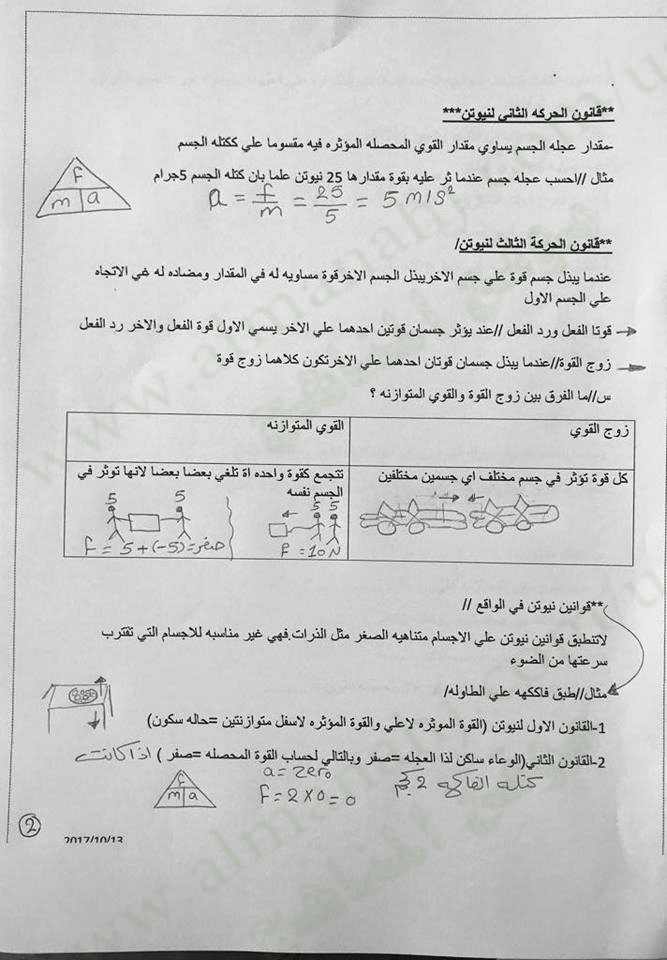 **قانون الحركه الثاني لنيوتن***
-مقدار عجله الجسم يساوي مقدار القوي المحصله المؤثره فيه مقسوما علي ككتله الجسم
مثال //احسب عجله جسم عندما ثر عليه بقوة مقدارها 25 نيوتن علما بان كتله الجسم 5جرام
f
m a
a = f/m = 25/5 = 5 m/s²
**قانون الحركة الثالث لنيوتن/
عندما يبذل جسم قوة علي جسم الاخريبذل الجسم الاخرقوة مساويه له في المقدار ومضاده له غي الاتجاه
علي الجسم الاول
قوتا الفعل ورد الفعل //عند يؤثر جسمان قوتين احدهما علي الاخر يسمي الاول قوة الفعل والاخر رد الفعل
زوج القوة//عندما يبذل جسمان قوتان احدهما علي الاخرتكون كلاهما زوج قوة
س//ما الفرق بين زوج القوة والقوي المتوازنه ؟
زوج القوي
القوي المتوازنه
كل قوة تؤثر في جسم مختلف اي جسمين مختلفين
تتجمع كقوة واحده اة تلغي بعضا بعضا لانها توثر في
الجسم نفسه
5 5
f = 10 N
5 5
f = 5 + (-5) = صفر
**قوانين نيوتن في الواقع //
لاتنطبق قوانين نيوتن علي الاجسام متناهيه الصغر مثل الذرات.فهي غير مناسبه للاجسام التي تقترب
سرعتها من الضوء
مثال//طبق فاككهه علي الطاوله/
1-القانون الاول لنيوتن (القوة الموثره لاعلي والقوة المؤثره لاسفل متوازنتين =حاله سكون)
2-القانون الثاني(الوعاء ساكن لذا العجله =صفر وبالتالي لحساب القوة المحصله =صفر ) اذا كانت
كتله الفاكهه 2 كجم
a = zero
f = 2 x 0 = 0
f
m a
2
2017/10/13
www.almanahj.com/u